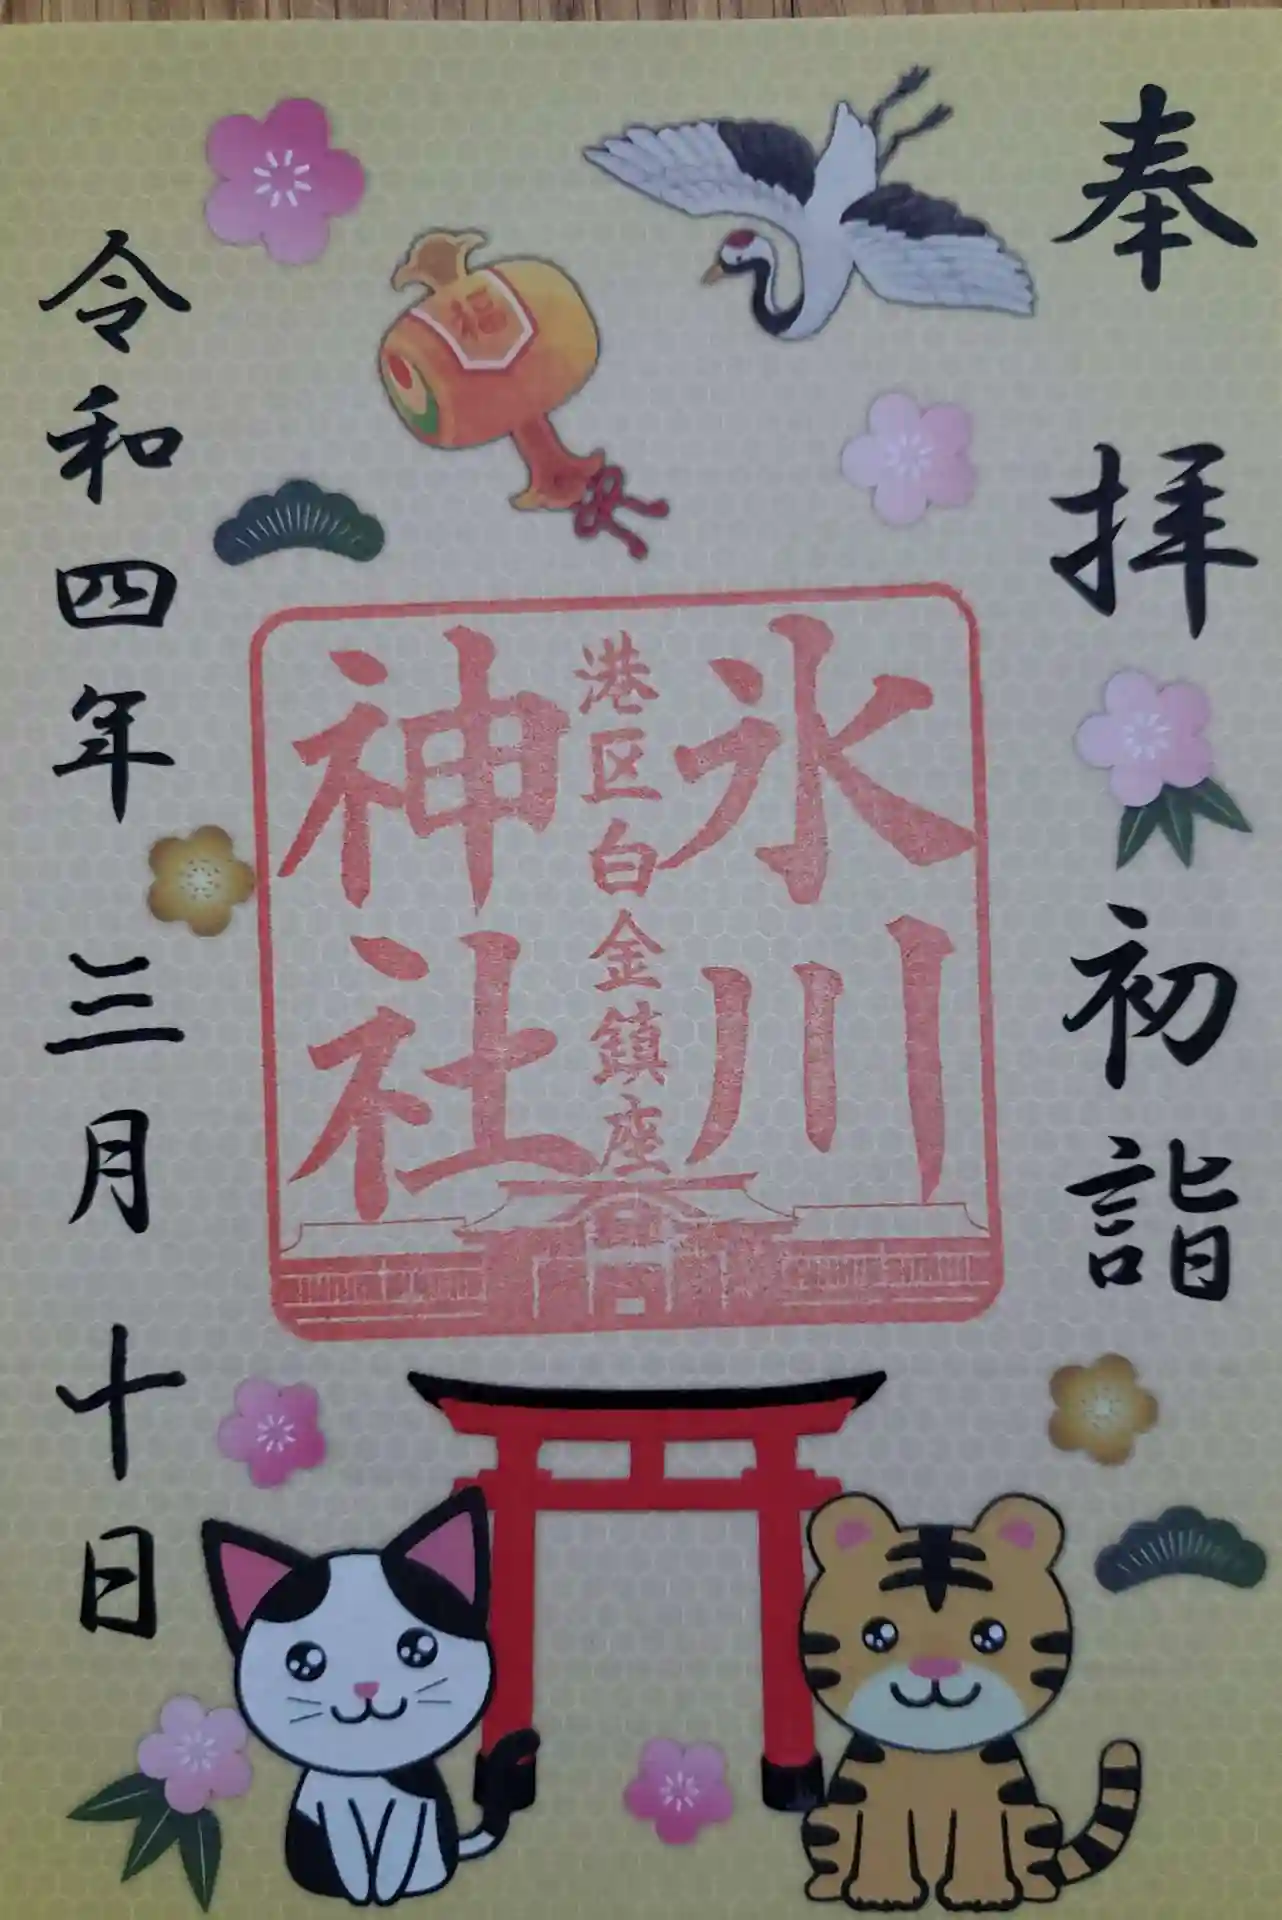 奉拝
初詣
氷川
港区白金鎮座
神社
令和四年三月十日
福